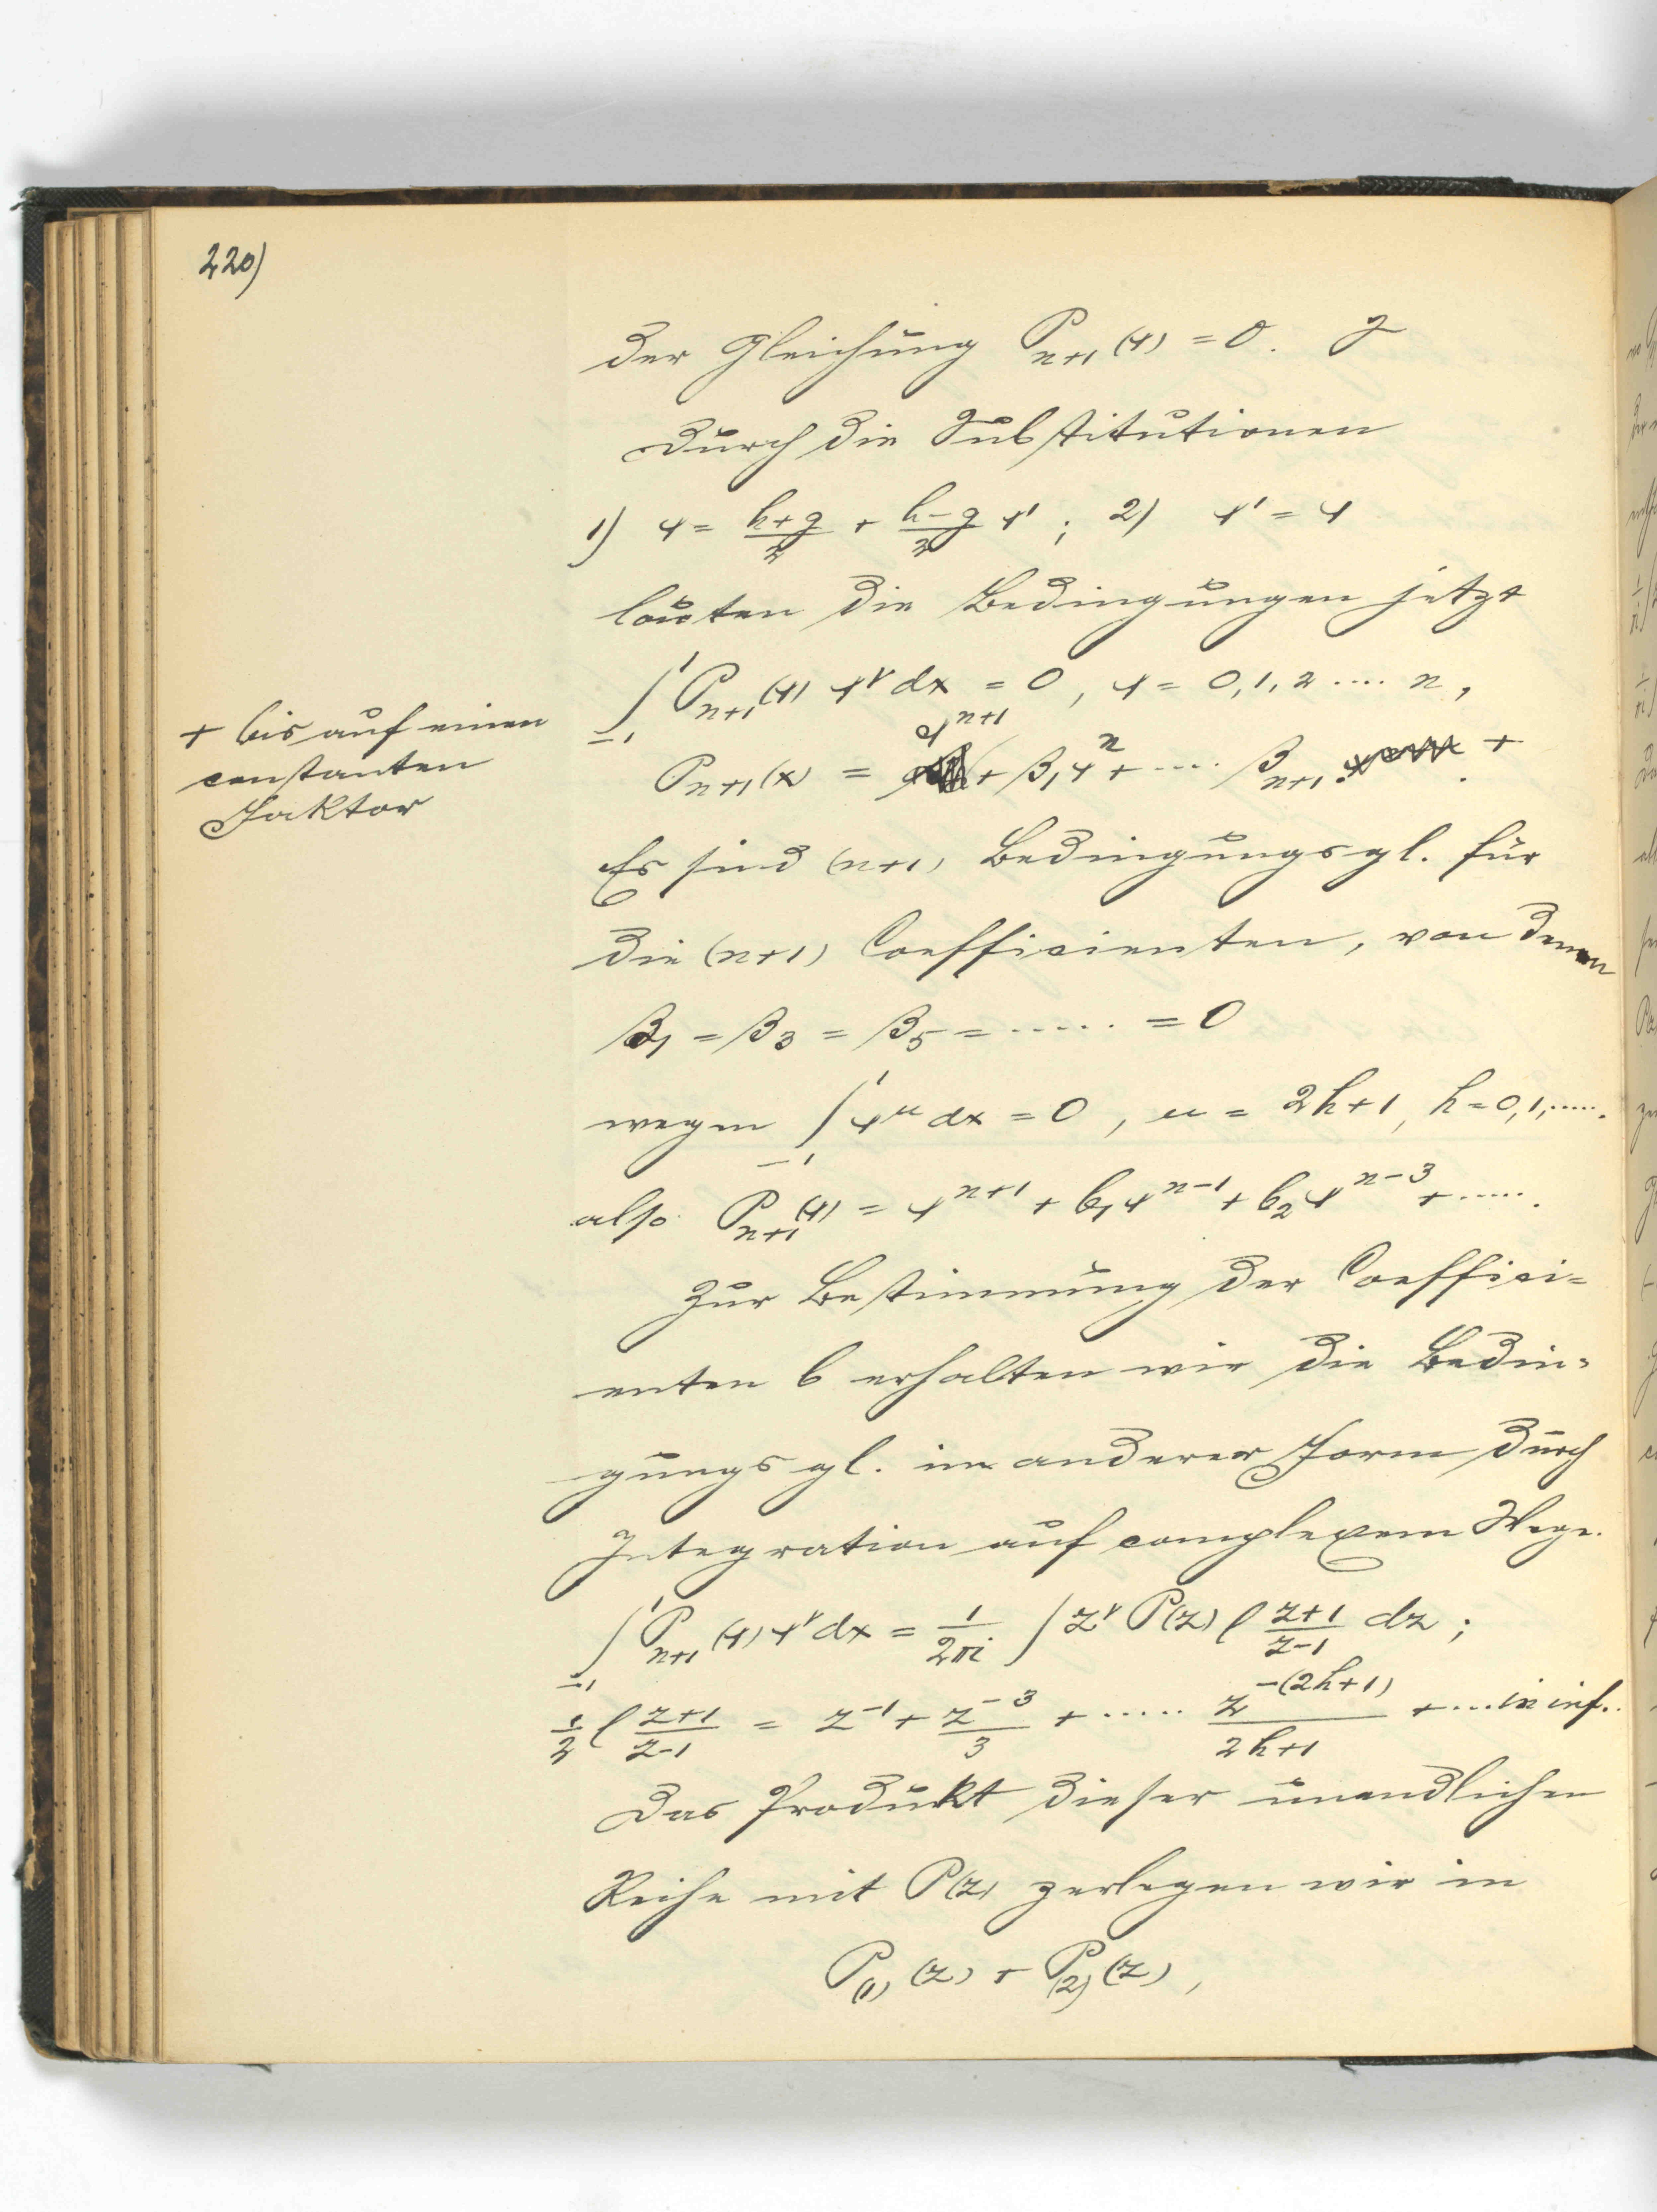 220)
der Gleichung P_{n+1}(x) = 0.
Durch die Substitutionen
1) x = \frac{h+g}{2} + \frac{h-g}{2} x' ; 2) x' = x
lauten die Bedingungen jetzt
\int_{-1}^{1} P_{n+1}(x) x^ν dx = 0, ν = 0, 1, 2 .... n,
+ bis auf einen
constanten
Faktor
P_{n+1}(x) = x^{n+1} + β_1 x^n + .... β_{n+1}. +
Es sind (n+1) Bedingungsgl. für
die (n+1) Coefficienten, von denen
β_1 = β_3 = β_5 = ..... = 0
wegen \int_{-1}^{1} x^μ dx = 0, μ = 2h+1, h = 0, 1, .....
also P_{n+1}(x) = x^{n+1} + b_1 x^{n-1} + b_2 x^{n-3} + .....
Zur Bestimmung der Coeffici=
enten b erhalten wir die Bedin=
gungsgl. in anderer Form durch
Integration auf complexem Wege.
\int_{-1}^{1} P_{n+1}(x) x^ν dx = \frac{1}{2πi} \int z^ν P(z) l \frac{z+1}{z-1} dz ;
\frac{1}{2} l \frac{z+1}{z-1} = z^{-1} + \frac{z^{-3}}{3} + ..... \frac{z^{-(2h+1)}}{2h+1} + ... in inf..
Das Produkt dieser unendlichen
Reihe mit P(z) zerlegen wir in
P_{(1)}(z) + P_{(2)}(z),